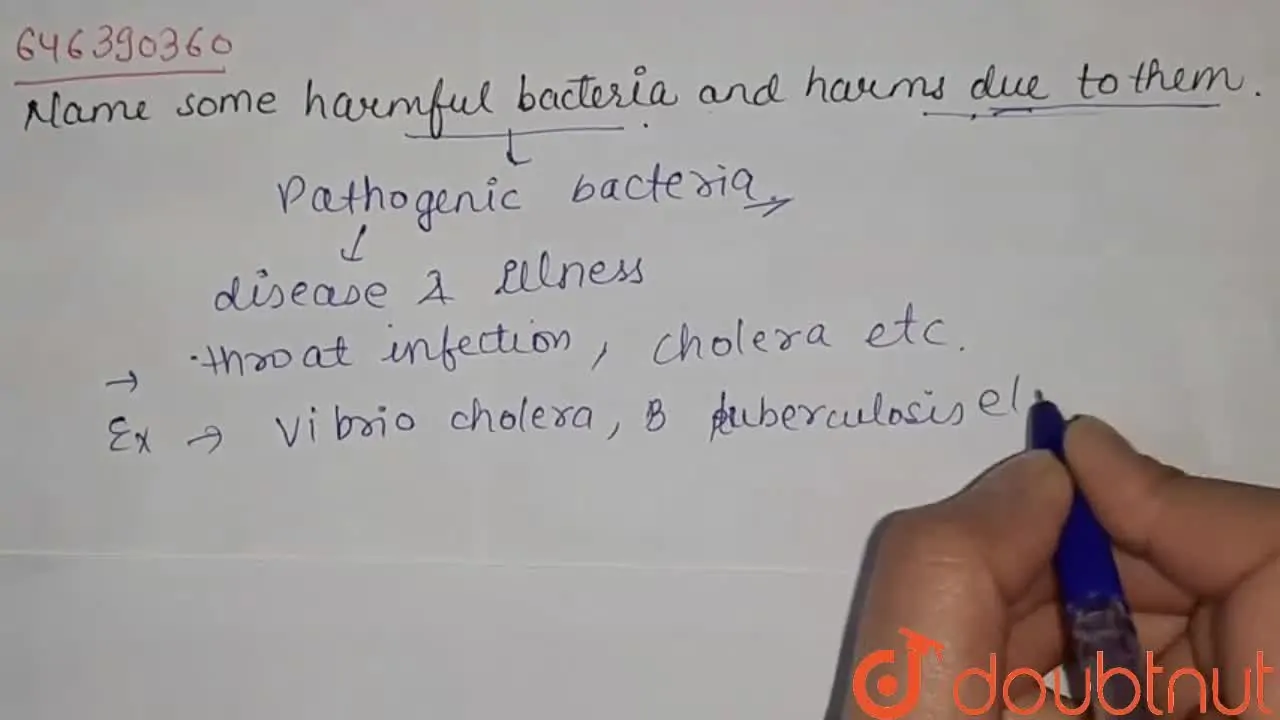 646390360
Name some harmful bacteria and harms due to them.
Pathogenic bacteria
disease & illness
throat infection, cholera etc.
Ex → Vibrio cholera, B tuberculosis et
doubtnut